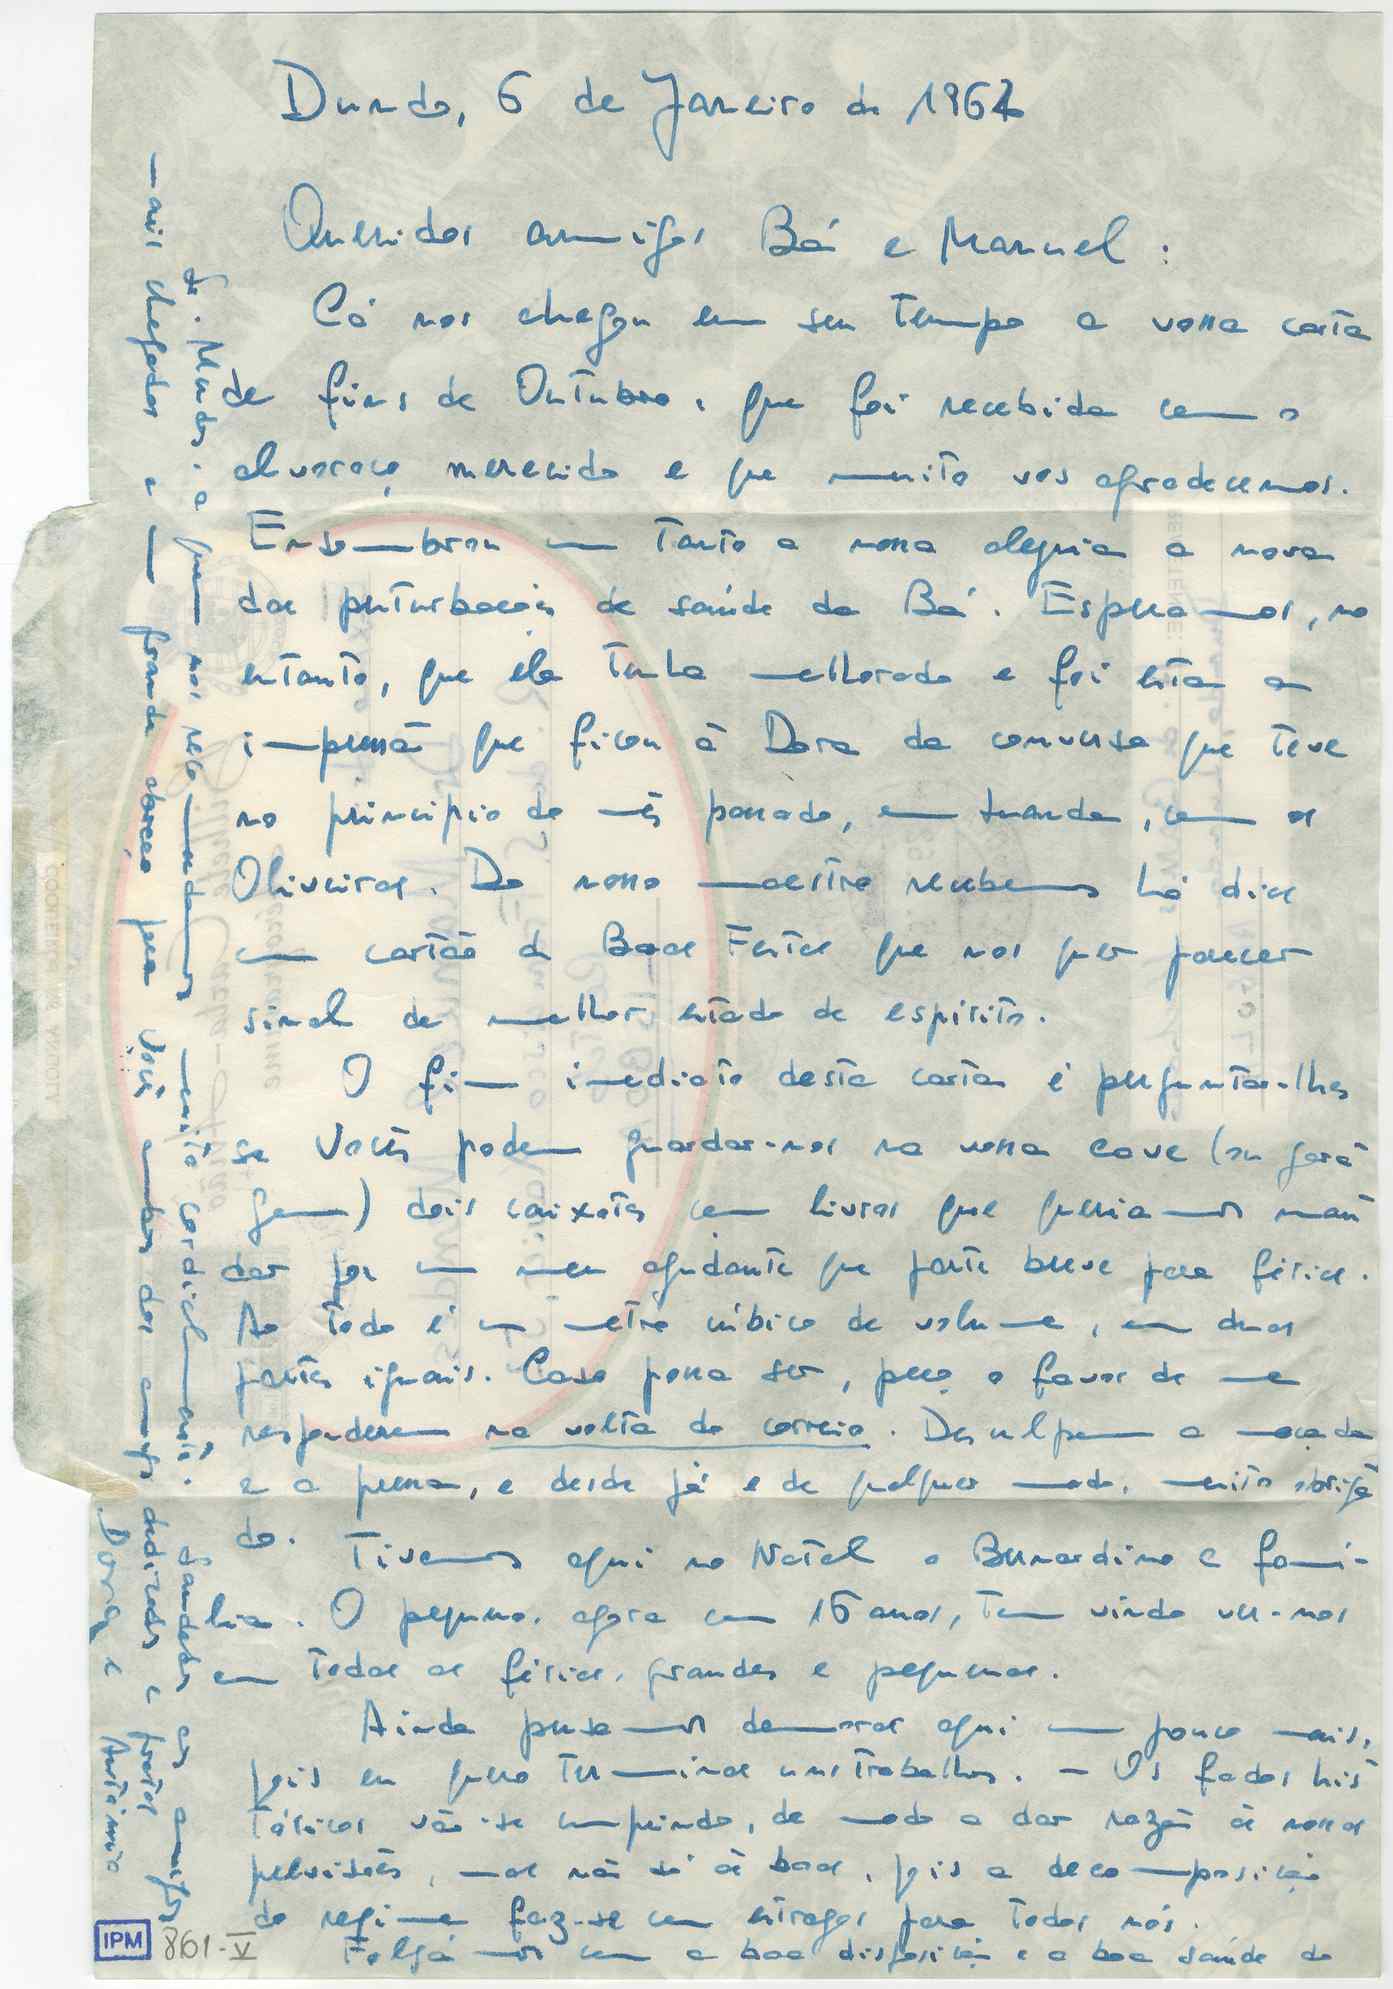 Dundo, 6 de Janeiro de 1962
Queridos amigos Bá e Manuel:
Cá nos chegou em seu tempo a vossa carta
de fins de Outubro, que foi recebida com o
alvoroço merecido e que muito vos agradecemos.
Ensombrou um tanto a nossa alegria a nova
das perturbações de saúde da Bá. Esperamos, no
entanto, que ela tenha melhorado e foi esta a
impressão que ficou à Dora da conversa que teve
no princípio do mês passado, em Luanda, com os
Oliveiras. Do nosso maestro recebemos há dias
um cartão de Boas Festas que nos quer parecer
sinal de melhor estado de espírito.
O fim imediato desta carta é perguntar-lhes
se Vocês podem guardar-nos na vossa cave (ou gara
gem) dois caixotes com livros que queriamos man
dar por um meu ajudante que parte breve para férias.
Ao todo é um metro cúbico de volume, em duas
partes iguais. Caso possa ser, peço o favor de me
responderem na volta do correio. Desculpem a maçada
e a pressa, e desde já e de qualquer modo, muito obriga
do.
Tivemos aqui no Natal o Bernardino e famí-
lia. O pequeno, agora com 15 anos, tem vindo ver-nos
em todas as férias, grandes e pequenas.
Ainda pensamos demorar aqui um pouco mais,
pois eu quero terminar uns trabalhos. - Os fados his
tóricos vão-se cumprindo, de modo a dar razão às nossas
previsões, mas não só às boas, pois a decomposição
do regime faz-se com estragos para todos nós.
Folgámos com a boa disposição e a boa saúde do
dr. Mendes, a quem nos recomendamos muito cordialmente. Saudades aos amigos
mais chegados e um grande abraço para Vocês ambos dos amigos dedicados e gratos
Dora e António
IPM 861-V